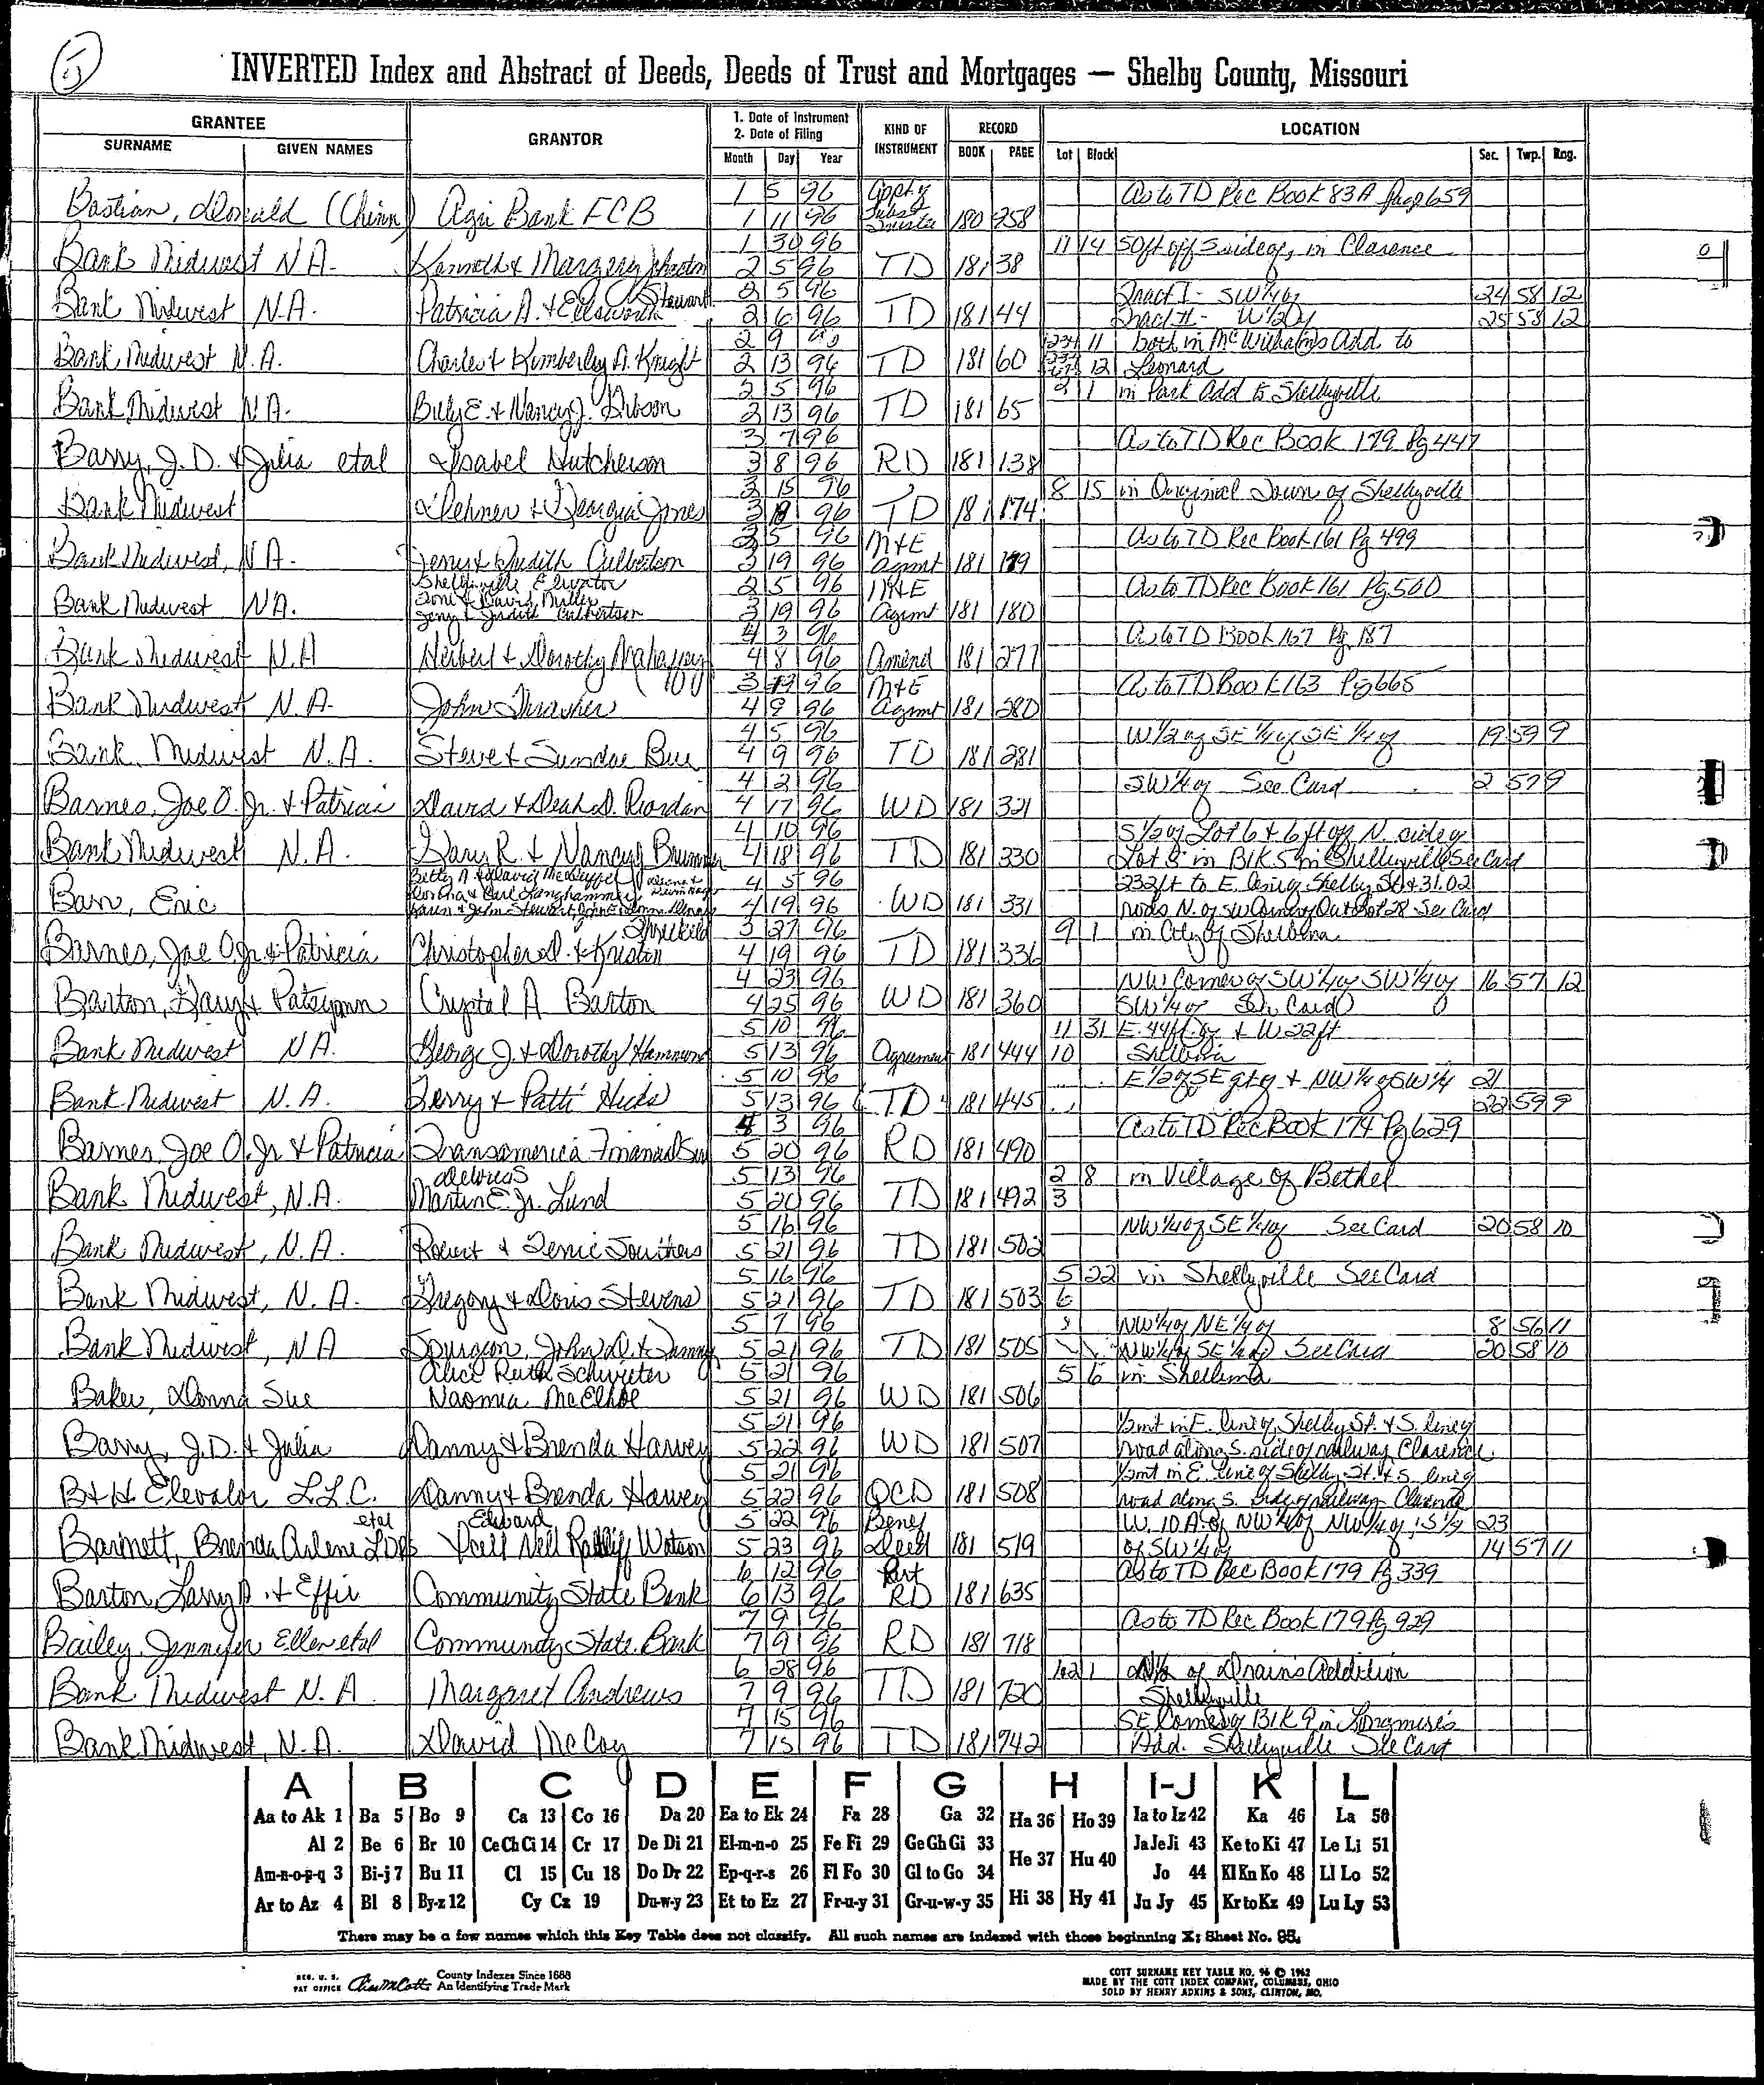 5
INVERTED Index and Abstract of Deeds, Deeds of Trust and Mortgages — Shelby County, Missouri
GRANTEE GRANTOR 1. Date of Instrument 2. Date of Filing KIND OF INSTRUMENT RECORD LOCATION
SURNAME GIVEN NAMES Month Day Year BOOK PAGE Lot Block Sec. Twp. Rng.
1 5 96 As to TD Rec Book 83A Page 659
Bastian, Donald (Chinn) Agri Bank FCB 1 11 96 180 258
1 30 96 11 14 50ft off S side of, in Clarence
Bank Midwest N.A. Kenneth & Margery 2 5 96 TD 181 38
Stewart 2 5 96 Tract I - SW 1/4 of 24 58 12
Bank Midwest N.A. Patricia A. & Ellsworth 2 6 96 TD 181 44 Tract II - W 1/2 of 25 58 12
2 9 11 both in McWilliams Add. to
Bank Midwest N.A. Charles & Kimberley A. Knight 2 13 96 TD 181 60 12 Leonard
2 5 96 1 in Park Add to Shelbyville
Bank Midwest N.A. Billy E. & Nancy J. Gibson 2 13 96 TD 181 65
3 7 96 As to TD Rec Book 179 Pg 447
Barry, J. D. & Julia etal Isabel Hutcherson 3 8 96 RD 181 138
3 15 96 8 15 in Original Town of Shelbyville
Bank Midwest & Georgia Jones 3 18 96 TD 181 174
5 96 M+E As to TD Rec Book 161 Pg 499
Bank Midwest, N.A. & Judith Culbertson 3 19 96 Agmt 181 179
Shelbyville Elevator 2 5 96 M+E As to TD Rec Book 161 Pg 500
Toni & David Miller
Bank Midwest N.A. Jerry & Judith Culbertson 3 19 96 Agmt 181 180
4 3 96 As to TD Book 167 Pg 187
Bank Midwest N.A Herbert & Dorothy Mahaffey 4 8 96 Amend 181 277
3 19 96 M+E As to TD Book 163 Pg 665
Bank Midwest N.A. John Thrasher 4 9 96 Agmt 181 280
4 5 96 W 1/2 of SE 1/4 of SE 1/4 of 19 59 9
Bank Midwest N.A. Steve & Sundae Bue 4 9 96 TD 181 281
4 2 96 SW 1/4 of See Card 2 57 9
Barnes, Joe O. Jr. & Patricia David & Leah D. Riordan 4 17 96 WD 181 321
4 10 96 S 1/2 of Lot 6 & 6 ft off N. side of
Bank Midwest N.A. Gary R. & Nancy Brummer 4 18 96 TD 181 330 Lot 8 in Blk 5 in Shelbyville See Card
4 5 96 232 ft to E. line of Shelby St & 31.02
Barr, Eric 4 19 96 WD 181 331 rods N. of SW Corner of Out Lot 28 See Card
Threlkeld 3 27 96 9 1 in City of Shelbina
Barnes, Joe O. Jr & Patricia Christopher D. & Kristin 4 19 96 TD 181 336
4 23 96 NW Corner of SW 1/4 of SW 1/4 of 16 57 12
Barton, Gary & Patsyann Crystal A Barton 4 25 96 WD 181 360 SW 1/4 of See Card
5 10 96 11 31 E. 44 ft. of & W 22 ft
Bank Midwest N.A. George J. & Dorothy Hammond 5 13 96 Agreement 181 444 10 Shelbina
5 10 96 E 1/2 of SE qtr & NW 1/4 of SW 1/4 21
Bank Midwest N.A. Terry & Patti Hicks 5 13 96 TD 181 445 22 59 9
4 3 96 As to TD Rec Book 174 Pg 629
Barnes, Joe O. Jr & Patricia Transamerica Financial 5 20 96 RD 181 490
Delores 5 13 96 2 8 in Village of Bethel
Bank Midwest, N.A. Martin E. Jr. Lund 5 20 96 TD 181 492 3
5 16 96 NW 1/4 of SE 1/4 of See Card 20 58 10
Bank Midwest, N.A. Robert & Terrie Southers 5 21 96 TD 181 502
5 16 96 5 22 in Shelbyville See Card
Bank Midwest, N.A. Gregory & Doris Stevens 5 21 96 TD 181 503 6
5 7 96 NW 1/4 of NE 1/4 of 8 56 11
Bank Midwest, NA Spurgeon, John D. & Tammy 5 21 96 TD 181 505 NW 1/4 of SE 1/4 of See Card 20 58 10
Alice Ruth Schwieter 5 21 96 5 6 in Shelbina
Baker, Donna Sue Naomia McElhoe 5 21 96 WD 181 506
5 21 96 Pmt in E. line of Shelby St. & S. line of
Barry, J.D. & Julia Danny & Brenda Harvey 5 22 96 WD 181 507 road along S. side of railway, Clarence
5 21 96 Pmt in E. line of Shelby St. & S. line of
B & H Elevator L.L.C. Danny & Brenda Harvey 5 22 96 QCD 181 508 road along S. side of railway Clarence
etal Edward 5 22 96 Benef W. 10 A. of NW 1/4 of NW 1/4 of; S 1/2 23
Barnett, Brenda Arlene Nell Ratliff Watson 5 23 96 Deed 181 519 of SW 1/4 of 14 57 11
6 12 96 Part As to TD Rec Book 179 Pg 339
Barton, Larry D. & Effie Community State Bank 6 13 96 RD 181 635
7 9 96 As to TD Rec Book 179 Pg 929
Bailey, Jennifer Ellen etal Community State Bank 7 9 96 RD 181 718
6 28 96 1 of Drains Addition
Bank Midwest N.A. Margaret Andrews 7 9 96 TD 181 720 Shelbyville
7 15 96 SE Corner of Blk 9 in Longmire's
Bank Midwest, N.A. David McCoy 7 15 96 TD 181 742 Add. Shelbyville See Card
A B C D E F G H I-J K L
Aa to Ak 1 Ba 5 Bo 9 Ca 13 Co 16 Da 20 Ea to Ek 24 Fa 28 Ga 32 Ha 36 Ho 39 Ia to Iz 42 Ka 46 La 50
Al 2 Be 6 Br 10 Ce Ch Ci 14 Cr 17 De Di 21 El-m-n-o 25 Fe Fi 29 Ge Gh Gi 33 He 37 Hu 40 Ja Je Ji 43 Ke to Ki 47 Le Li 51
Am-n-o-p-q 3 Bi-j 7 Bu 11 Cl 15 Cu 18 Do Dr 22 Ep-q-r-s 26 Fl Fo 30 Gl to Go 34 Jo 44 Kl Kn Ko 48 Ll Lo 52
Ar to Az 4 Bl 8 By-z 12 Cy Cz 19 Du-w-y 23 Et to Ez 27 Fr-u-y 31 Gr-u-w-y 35 Hi 38 Hy 41 Ju Jy 45 Kr to Kz 49 Lu Ly 53
There may be a few names which this Key Table does not classify. All such names are indexed with those beginning X; Sheet No. 95.
REG. U. S. PAT OFFICE County Indexes Since 1888 An Identifying Trade Mark
COTT SURNAME KEY TABLE NO. 96 © 1962
MADE BY THE COTT INDEX COMPANY, COLUMBUS, OHIO
SOLD BY HENRY ADKINS & SONS, CLINTON, MO.